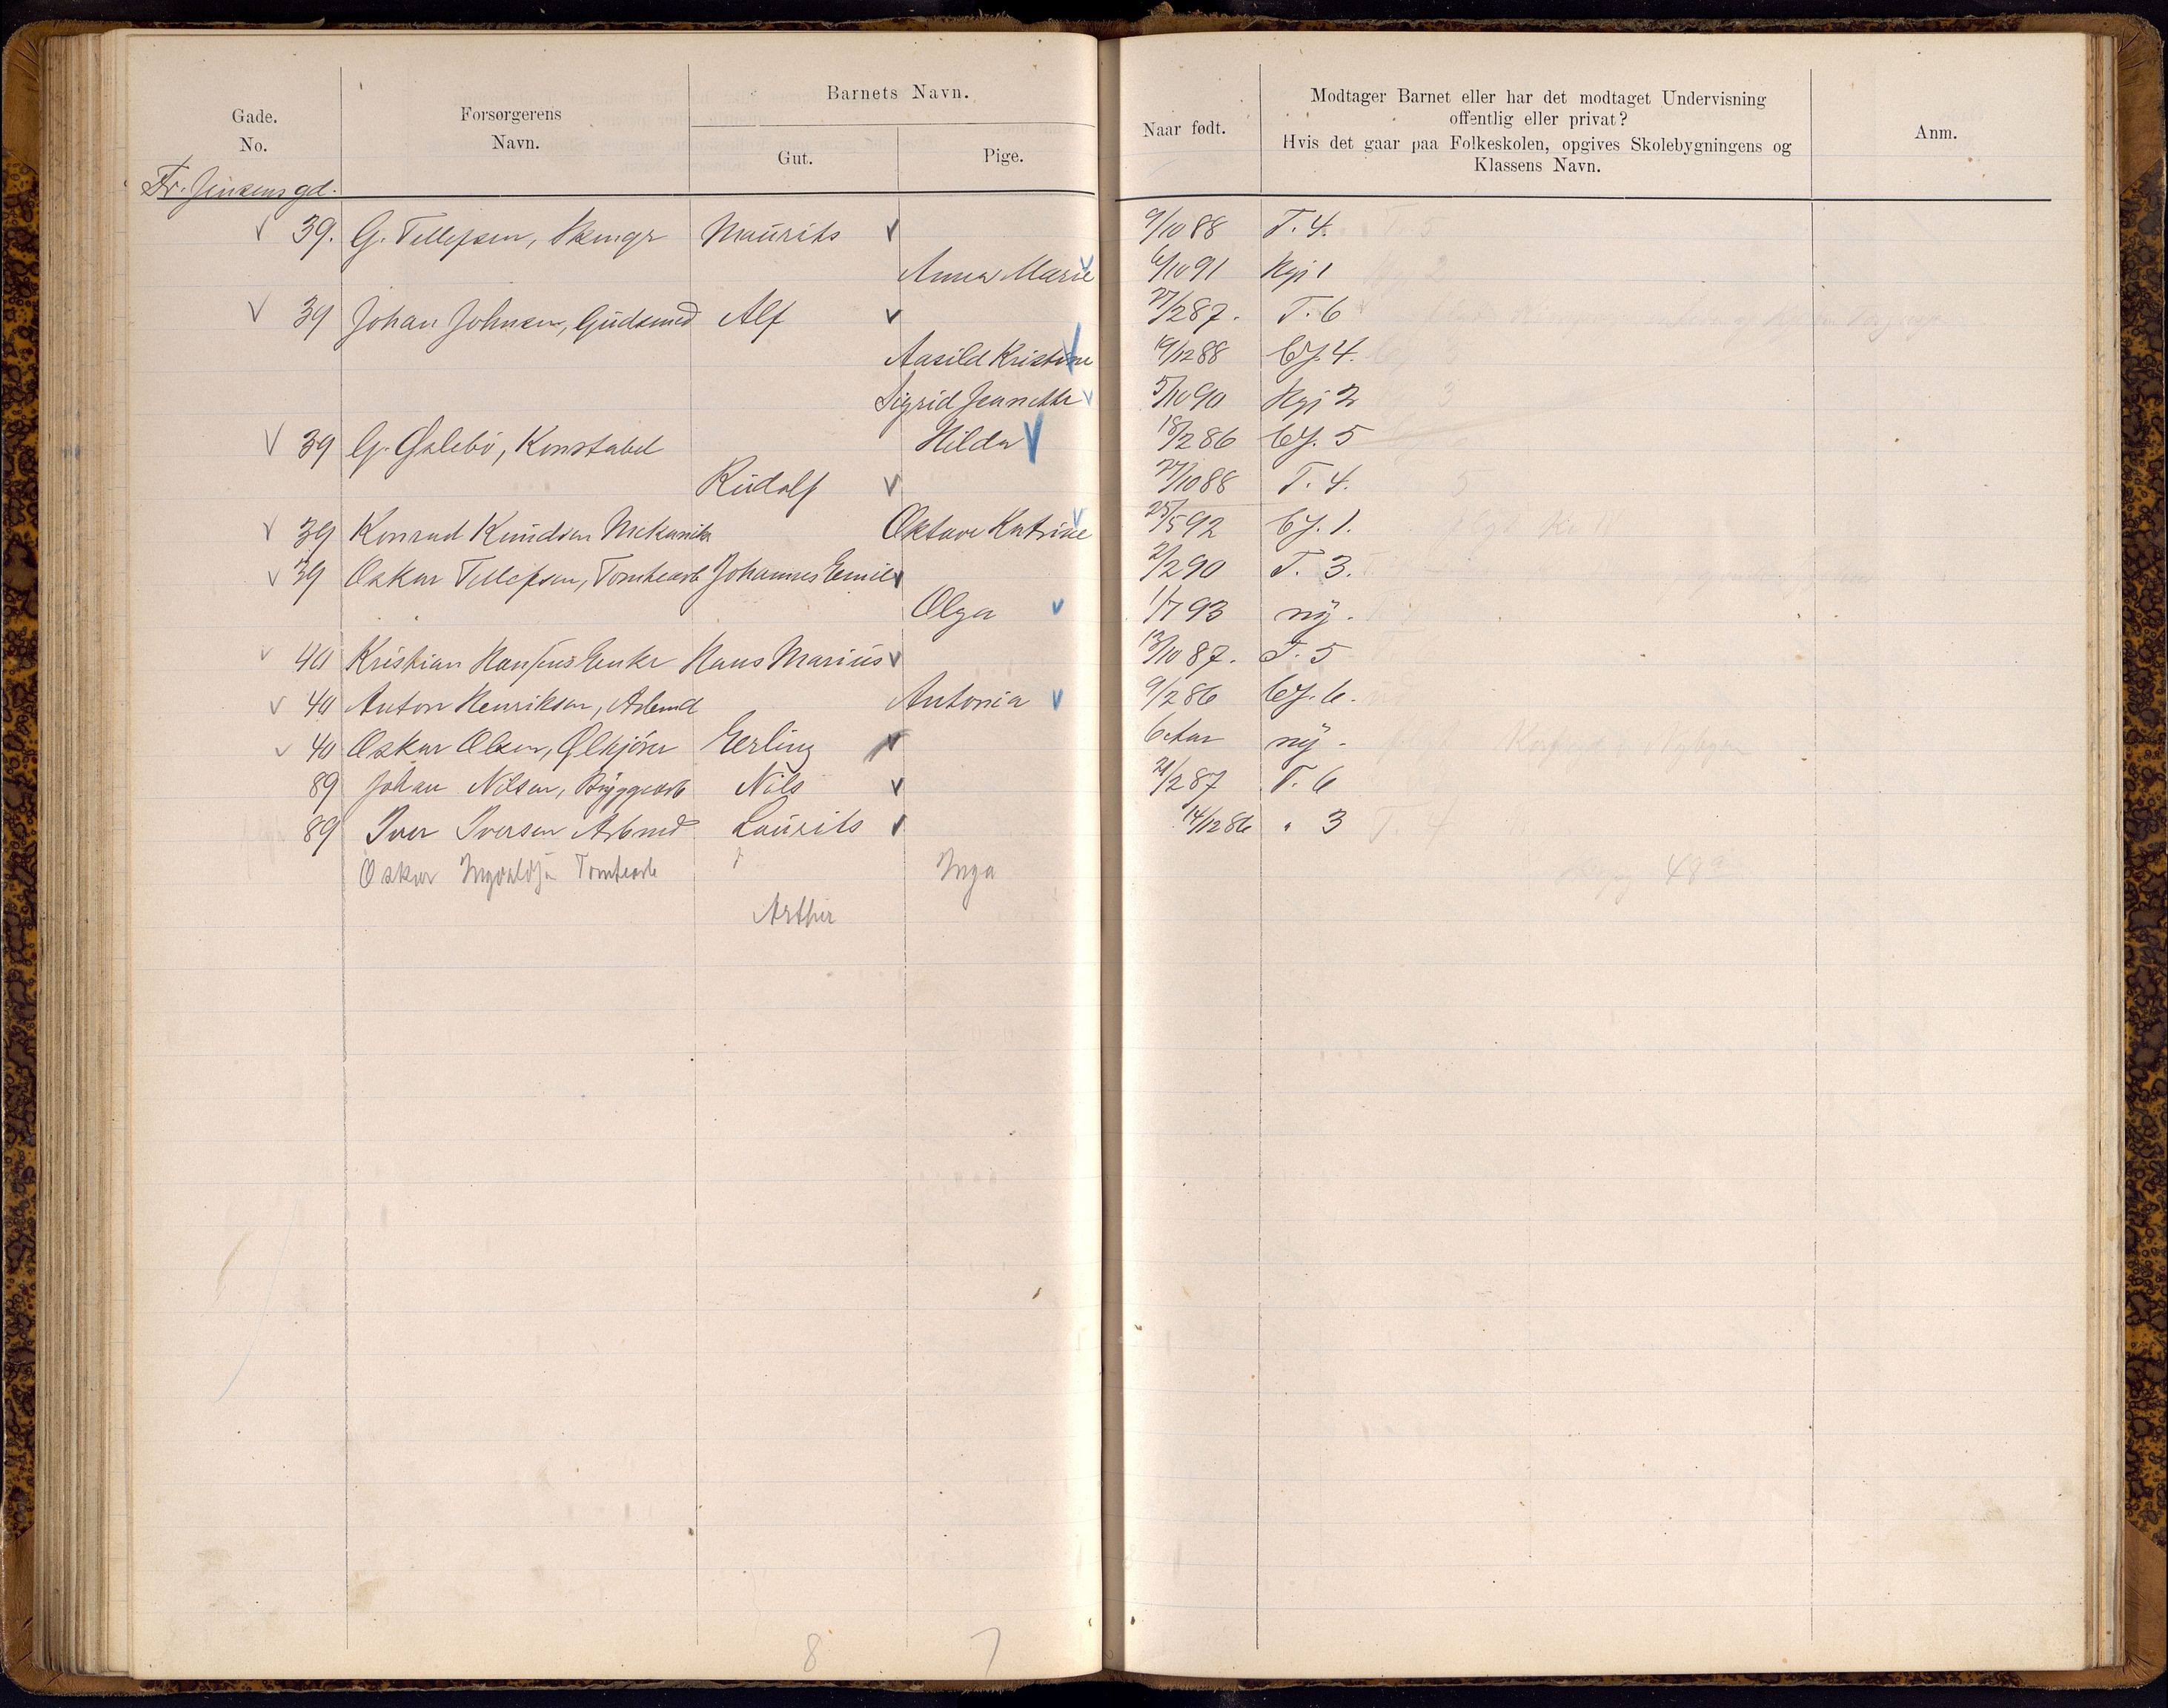 Gade.
No.
Forsørgerens
Navn.
Barnets Navn.
Gut.
Pige.
Naar født.
Modtager Barnet eller har det modtaget Undervisning
offentlig eller privat?
Hvis det gaar paa Folkeskolen, opgives Skolebygningens og
Klassens Navn.
Anm.
Fr. Jensens gd.
39. G. Tellefsen, Maurits 9/10 88 T. 4. T. 5
Anna Marie 6/10 91 Kgj 1 2
39 Johan Johnsen, Guldsmed Alf 27/2 87. T. 6
Aasild Kristine 19/12 88 Gj. 4.
Sigrid Jeanette 5/10 90 Kgj 2 3
39 G. Øslebö, Konstabel Hilda 18/2 86 Gj. 5
Rudolf 27/10 88 T. 4. 5
39 Konrad Knudsen Mekanik Oktave Katrine 25/5 92 Gj. 1.
39 Oskar Tellefsen, Tomtearb Johannes Emil 2/2 90 T. 3.
Olga 1/7 93 ny.
40 Kristian Hansens Enke Hans Marius 13/10 87. T. 5
40 Anton Henriksen, Arbmd Antonia 9/2 86 Gj. 6.
40 Oskar Olsen, Ølkjörer Erling 6 Aar ny.
89 Johan Nilsen, Bryggearb Nils 21/2 87 T. 6
89 Iver Iversen Arbmd Laurits 14/12 86 " 3 T. 4
Oskar Ingvaldsen Tomtearb Inga
Arthur
8 7